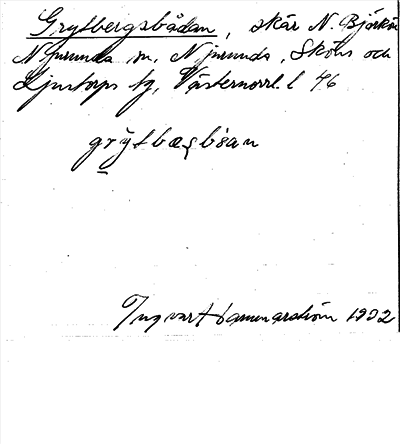 Grytbergsbådan, skär N. Björkön
Njurunda sn, Njurunda, Sköns och
Ljustorps tg, Västernorrl. l 46
grytbæs̨bòan
Ingvar Hammarström 1932